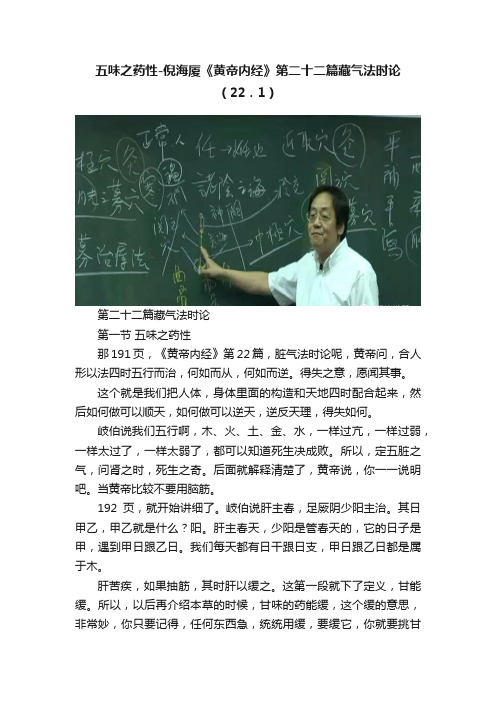 五味之药性-倪海厦《黄帝内经》第二十二篇藏气法时论
（22．1）
正常人 任→妊也 近取穴 灸
关元 神阙 关元
中极穴 募穴
募治厚法
第二十二篇藏气法时论
第一节 五味之药性
那191页，《黄帝内经》第22篇，脏气法时论呢，黄帝问，合人
形以法四时五行而治，何如而从，何如而逆。得失之意，愿闻其事。
这个就是我们把人体，身体里面的构造和天地四时配合起来，然
后如何做可以顺天，如何做可以逆天，逆反天理，得失如何。
岐伯说我们五行啊，木、火、土、金、水，一样过亢，一样过弱，
一样太过了，一样太弱了，都可以知道死生决成败。所以，定五脏之
气，问肾之时，死生之奇。后面就解释清楚了，黄帝说，你一一说明
吧。当黄帝比较不要用脑筋。
192 页，就开始讲细了。岐伯说肝主春，足厥阴少阳主治。其日
甲乙，甲乙就是什么？阳。肝主春天，少阳是管春天的，它的日子是
甲，遇到甲日跟乙日。我们每天都有日干跟日支，甲日跟乙日都是属
于木。
肝苦疾，如果抽筋，其时肝以缓之。这第一段就下了定义，甘能
缓。所以，以后再介绍本草的时候，甘味的药能缓，这个缓的意思，
非常妙，你只要记得，任何东西急，统统用缓，要缓它，你就要挑甘